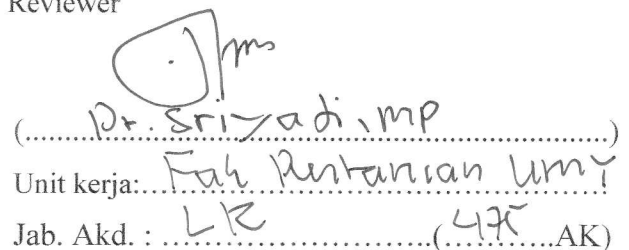 Reviewer
(........Dr. Sriyadi, MP........)
Unit kerja:...Fak Pertanian UMY
Jab. Akd. : ....LK....(...475...AK)